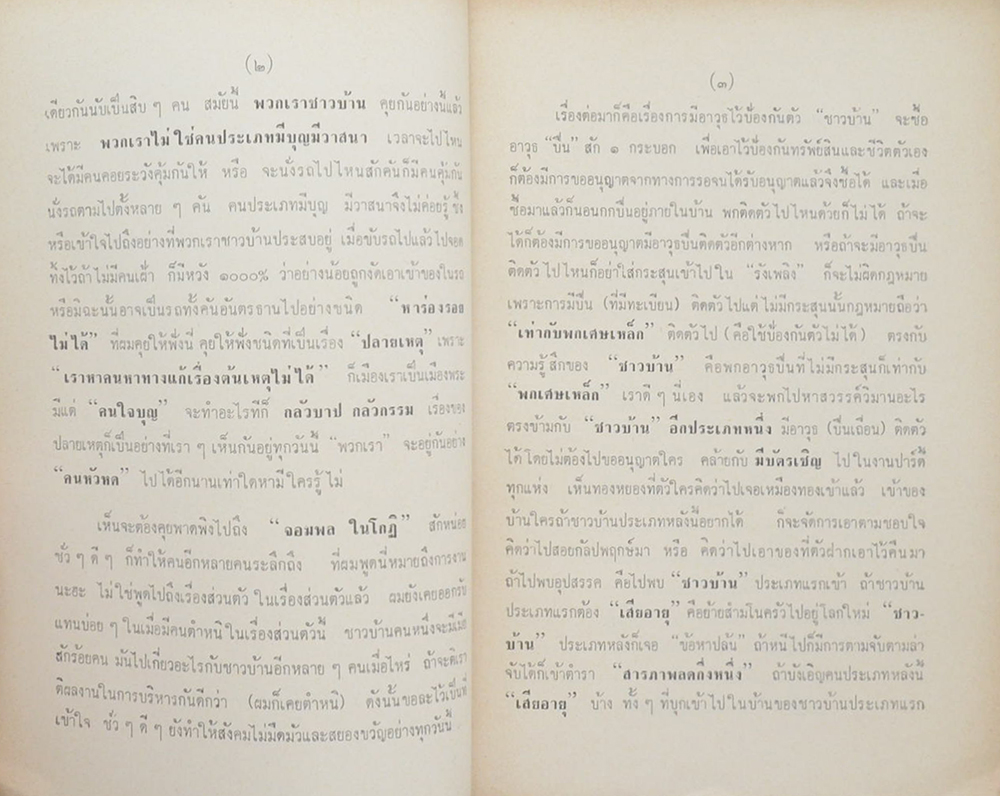 (๒)
เดียวกันนับเป็นสิบ ๆ คน สมัยนี้ พวกเราชาวบ้าน คุยกันอย่างนี้แล้ว
เพราะ พวกเราไม่ใช่คนประเภทมีบุญมีวาสนา เวลาจะไปไหน
จะได้มีคนคอยระวังคุ้มกันให้ หรือ จะนั่งรถไปไหนสักคันก็มีคนคุ้มกัน
นั่งรถตามไปตั้งหลาย ๆ คัน คนประเภทมีบุญ มีวาสนาจึงไม่ค่อยรู้ ซึ้ง
หรือเข้าใจไปถึงอย่างที่พวกเราชาวบ้านประสบอยู่ เมื่อขับรถไปแล้วไปจอด
ทิ้งไว้ถ้าไม่มีคนเฝ้า ก็มีหวัง ๑๐๐๐% ว่าอย่างน้อยถูกงัดเอาเข้าของในรถ
หรือมิฉะนั้นอาจเป็นรถทั้งคันอันตรธานไปอย่างชนิด “หาร่องรอย
ไม่ได้” ที่ผมคุยให้ฟังนี่ คุยให้ฟังชนิดที่เป็นเรื่อง “ปลายเหตุ” เพราะ
“เราหาคนหาทางแก้เรื่องต้นเหตุไม่ได้” ก็เมืองเราเป็นเมืองพระ
มีแต่ “คนใจบุญ” จะทำอะไรทีก็ กลัวบาป กลัวกรรม เรื่องของ
ปลายเหตุก็เป็นอย่างที่เรา ๆ เห็นกันอยู่ทุกวันนี้ “พวกเรา” จะอยู่กันอย่าง
“คนหัวหด” ไปได้อีกนานเท่าใดหามีใครรู้ไม่
เห็นจะต้องคุยพาดพิงไปถึง “จอมพล ในโกฏิ” สักหน่อย
ชั่ว ๆ ดี ๆ ก็ทำให้คนอีกหลายคนระลึกถึง ที่ผมพูดนี่หมายถึงการงาน
นะฮะ ไม่ใช่พูดไปถึงเรื่องส่วนตัว ในเรื่องส่วนตัวแล้ว ผมยังเคยออกรับ
แทนบ่อย ๆ ในเมื่อมีคนตำหนิในเรื่องส่วนตัวนี้ ชาวบ้านคนหนึ่งจะมีเมีย
สักร้อยคน มันไปเกี่ยวอะไรกับชาวบ้านอีกหลาย ๆ คนเมื่อไหร่ ถ้าจะติเรา
ติผลงานในการบริหารกันดีกว่า (ผมก็เคยตำหนิ) ดังนั้นขอละไว้เป็นที่
เข้าใจ ชั่ว ๆ ดี ๆ ยังทำให้สังคมไม่มืดมัวและสยองขวัญอย่างทุกวันนี้
(๓)
เรื่องต่อมาก็คือเรื่องการมีอาวุธไว้ป้องกันตัว “ชาวบ้าน” จะซื้อ
อาวุธ “ปืน” สัก ๑ กระบอก เพื่อเอาไว้ป้องกันทรัพย์สินและชีวิตตัวเอง
ก็ต้องมีการขออนุญาตจากทางการรอจนได้รับอนุญาตแล้วจึงซื้อได้ และเมื่อ
ซื้อมาแล้วก็นอนกกปืนอยู่ภายในบ้าน พกติดตัวไปไหนด้วยก็ไม่ได้ ถ้าจะ
ได้ก็ต้องมีการขออนุญาตมีอาวุธปืนติดตัวอีกต่างหาก หรือถ้าจะมีอาวุธปืน
ติดตัวไปไหนก็อย่าใส่กระสุนเข้าไปใน “รังเพลิง” ก็จะไม่ผิดกฎหมาย
เพราะการมีปืน (ที่มีทะเบียน) ติดตัวไปแต่ไม่มีกระสุนนั้นกฎหมายถือว่า
“เท่ากับพกเศษเหล็ก” ติดตัวไป (คือใช้ป้องกันตัวไม่ได้) ตรงกับ
ความรู้สึกของ “ชาวบ้าน” คือพกอาวุธปืนที่ไม่มีกระสุนก็เท่ากับ
“พกเศษเหล็ก” เราดี ๆ นี่เอง แล้วจะพกไปหาสวรรค์วิมานอะไร
ตรงข้ามกับ “ชาวบ้าน” อีกประเภทหนึ่ง มีอาวุธ (ปืนเถื่อน) ติดตัว
ได้โดยไม่ต้องไปขออนุญาตใคร คล้ายกับ มีบัตรเชิญ ไปในงานปาร์ตี้
ทุกแห่ง เห็นทองหยองที่ตัวใครคิดว่าไปเจอเหมืองทองเข้าแล้ว เข้าของ
บ้านใครถ้าชาวบ้านประเภทหลังนี้อยากได้ ก็จะจัดการเอาตามชอบใจ
คิดว่าไปสอยกัลปพฤกษ์มา หรือ คิดว่าไปเอาของที่ตัวฝากเอาไว้คืนมา
ถ้าไปพบอุปสรรค คือไปพบ “ชาวบ้าน” ประเภทแรกเข้า ถ้าชาวบ้าน
ประเภทแรกต้อง “เสียอายุ” คือย้ายสำมโนครัวไปอยู่โลกใหม่ “ชาว-
บ้าน” ประเภทหลังก็เจอ “ข้อหาปล้น” ถ้าหนีไปก็มีการตามจับตามล่า
จับได้ก็เข้าตำรา “สารภาพลดกึ่งหนึ่ง” ถ้าบังเอิญคนประเภทหลังนี้
“เสียอายุ” บ้าง ทั้ง ๆ ที่บุกเข้าไปในบ้านของชาวบ้านประเภทแรก